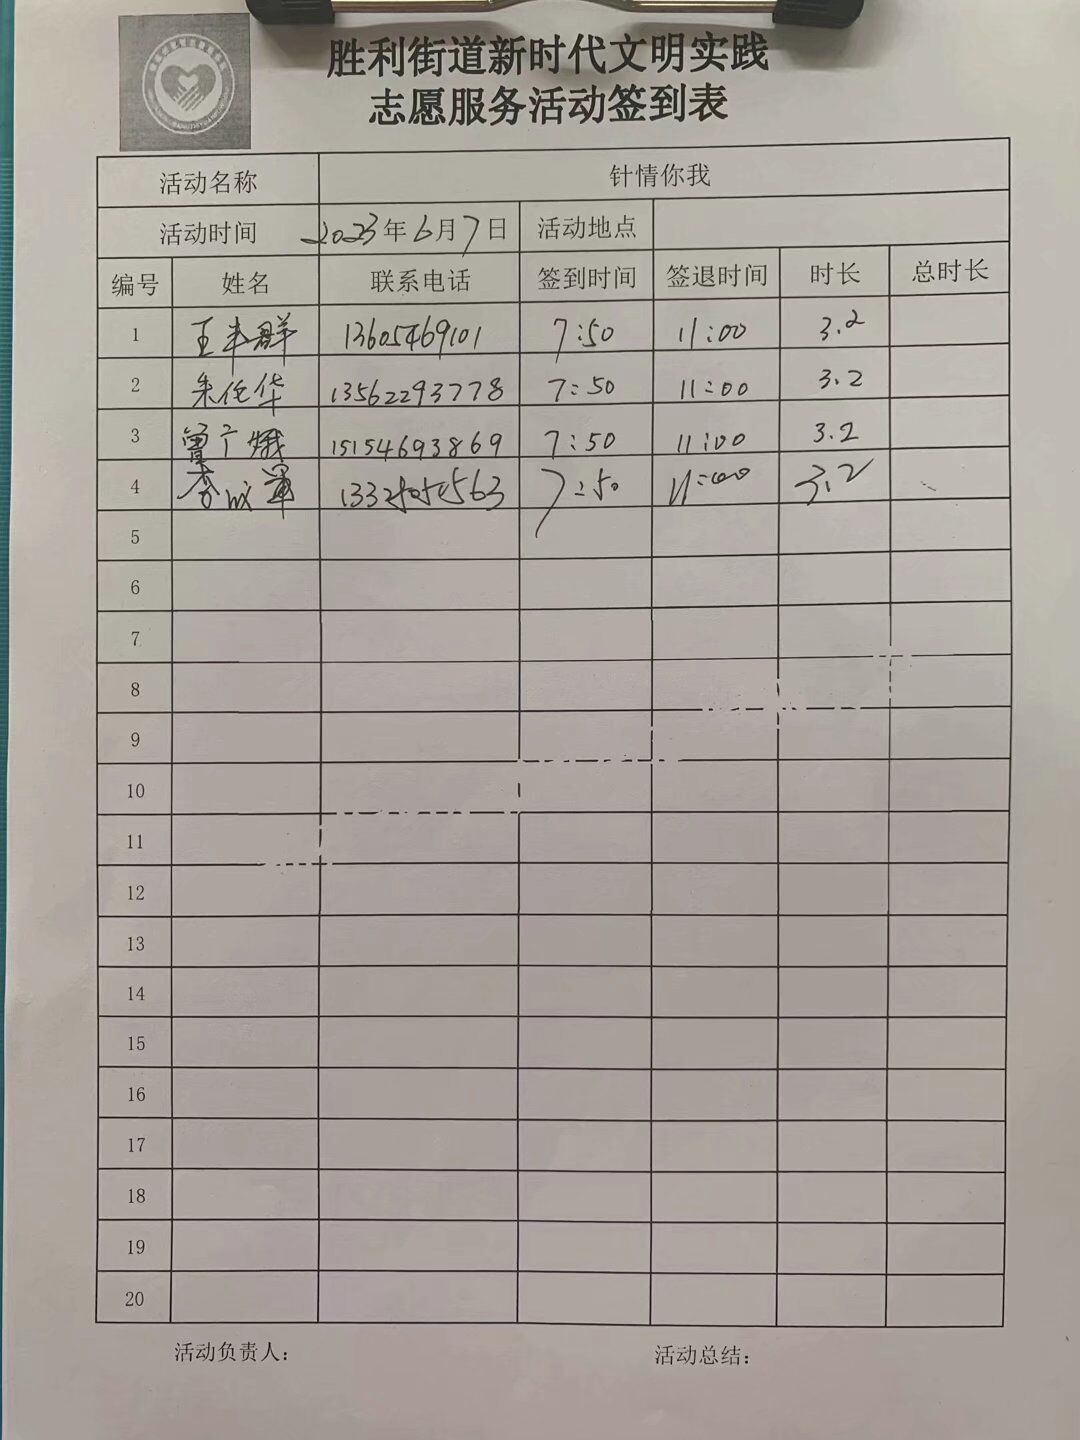 胜利街道新时代文明实践
志愿服务活动签到表
活动名称 针情你我
活动时间 2023年6月7日 活动地点
编号 姓名 联系电话 签到时间 签退时间 时长 总时长
1 王丰群 13605469101 7:50 11:00 3.2
2 朱伦华 13562293778 7:50 11:00 3.2
3 曾广娥 15154693869 7:50 11:00 3.2
4 7:50 11:00 3.2
5
6
7
8
9
10
11
12
13
14
15
16
17
18
19
20
活动负责人: 活动总结: